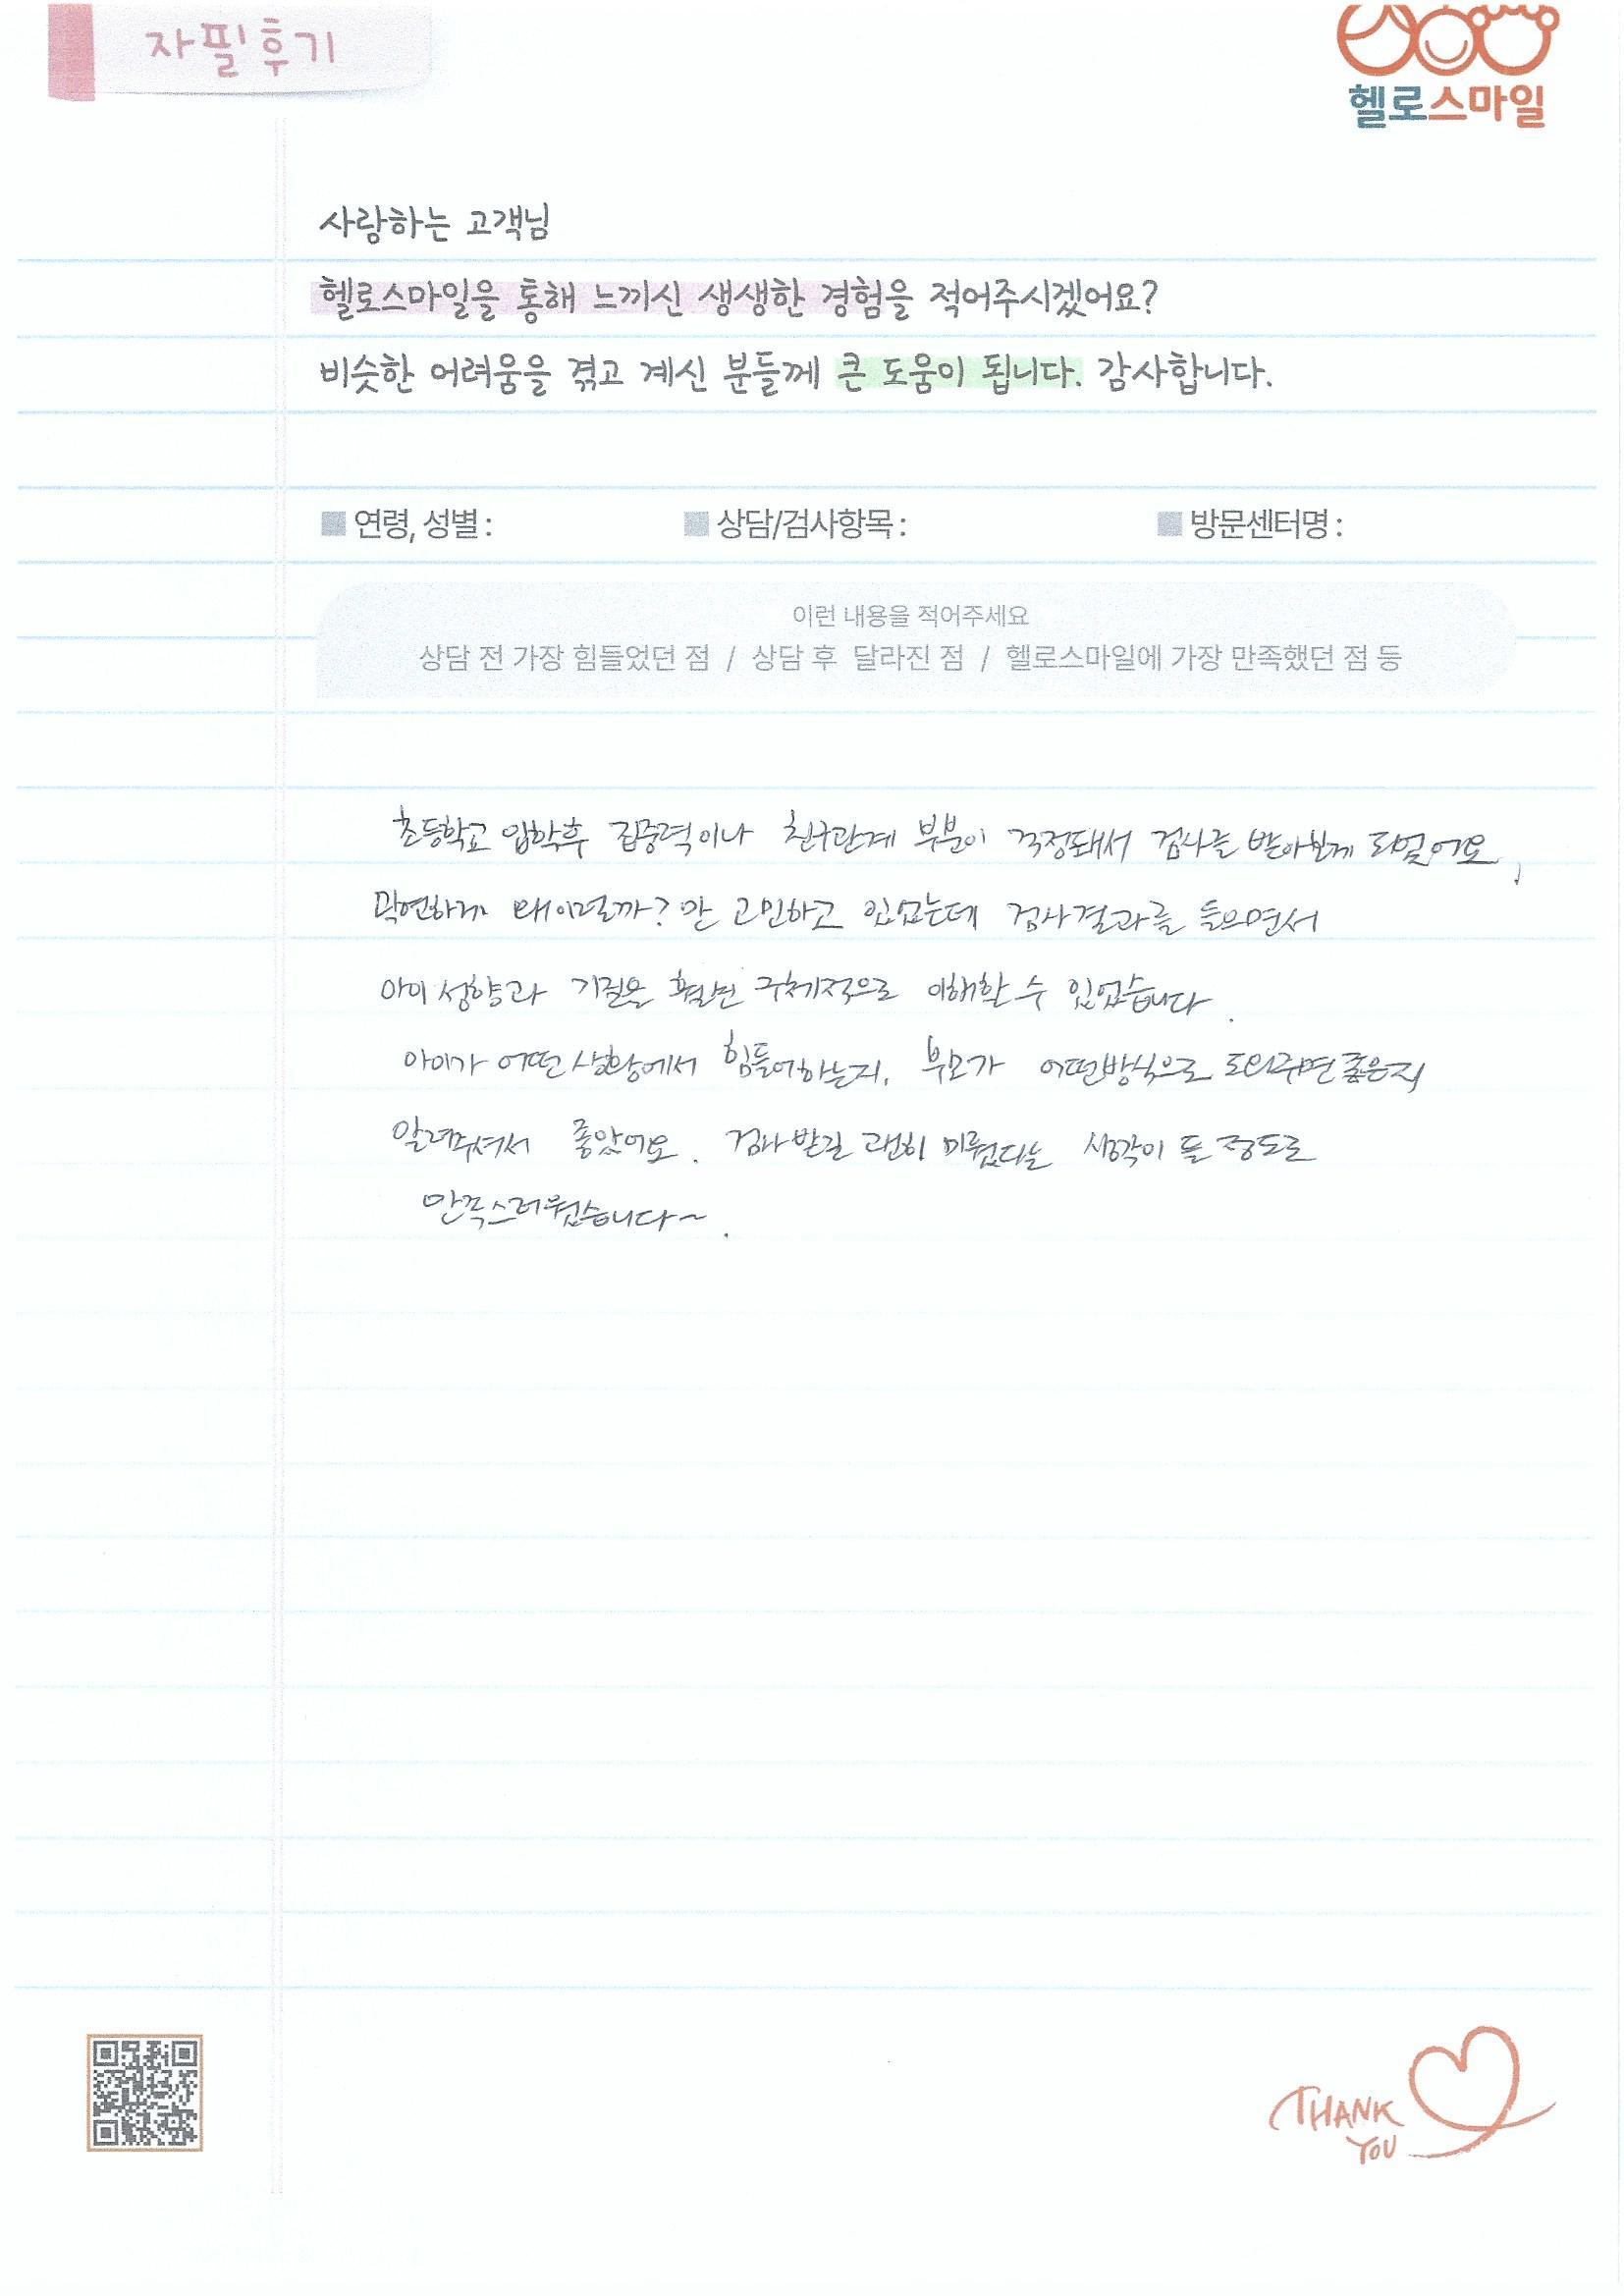 자필후기
헬로스마일
사랑하는 고객님
헬로스마일을 통해 느끼신 생생한 경험을 적어주시겠어요?
비슷한 어려움을 겪고 계신 분들께 큰 도움이 됩니다. 감사합니다.
연령, 성별 : 상담/검사항목 : 방문센터명 :
이런 내용을 적어주세요
상담 전 가장 힘들었던 점 / 상담 후 달라진 점 / 헬로스마일에 가장 만족했던 점 등
초등학교 입학후 집중력이나 친구관계 부분이 걱정돼서 검사를 받아보게 되었어요,
막연하게 왜이럴까? 만 고민하고 있었는데 검사결과를 들으면서
아이 성향과 기질을 훨씬 구체적으로 이해할 수 있었습니다.
아이가 어떤상황에서 힘들어하는지, 부모가 어떤방식으로 도와주면 좋은지
알려주셔서 좋았어요. 검사받길 괜히 미뤘다는 생각이 들 정도로
만족스러웠습니다~.
THANK
YOU